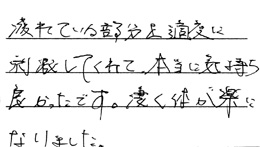 疲れている部分を適度に
刺激してくれて、本当に気持ち
良かったです。凄く体が楽に
なりました。